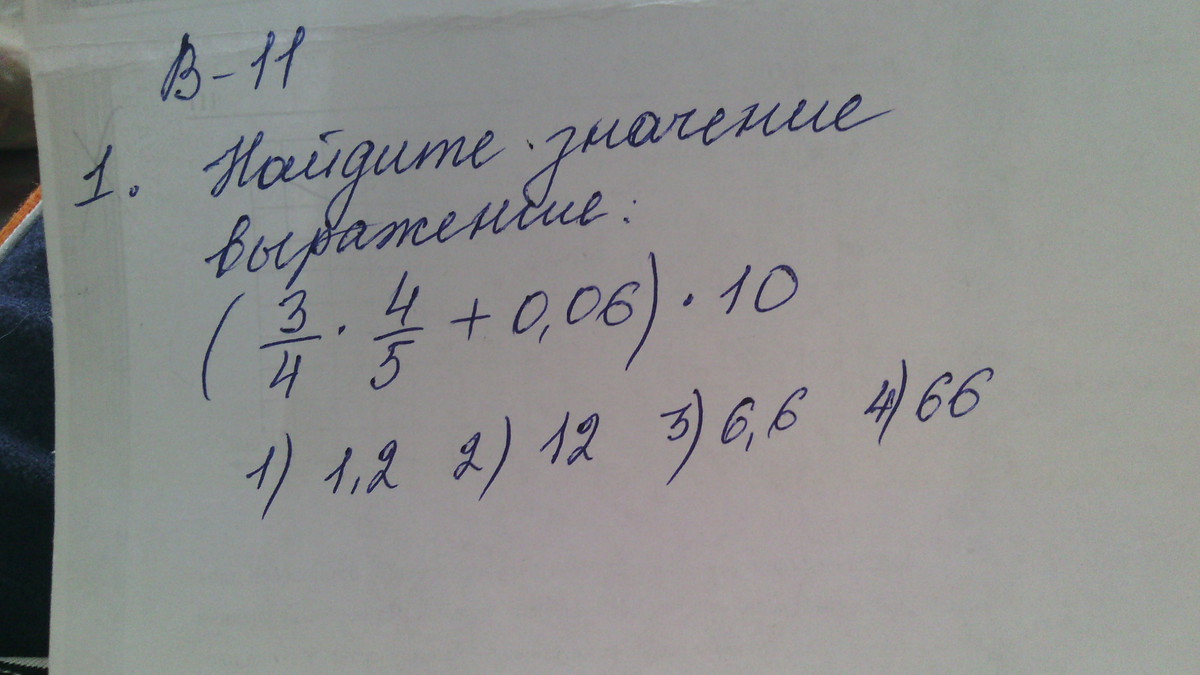 В-11
1. Найдите значение
выражение:
(3/4 · 4/5 + 0,06) · 10
1) 1,2 2) 12 3) 6,6 4) 66